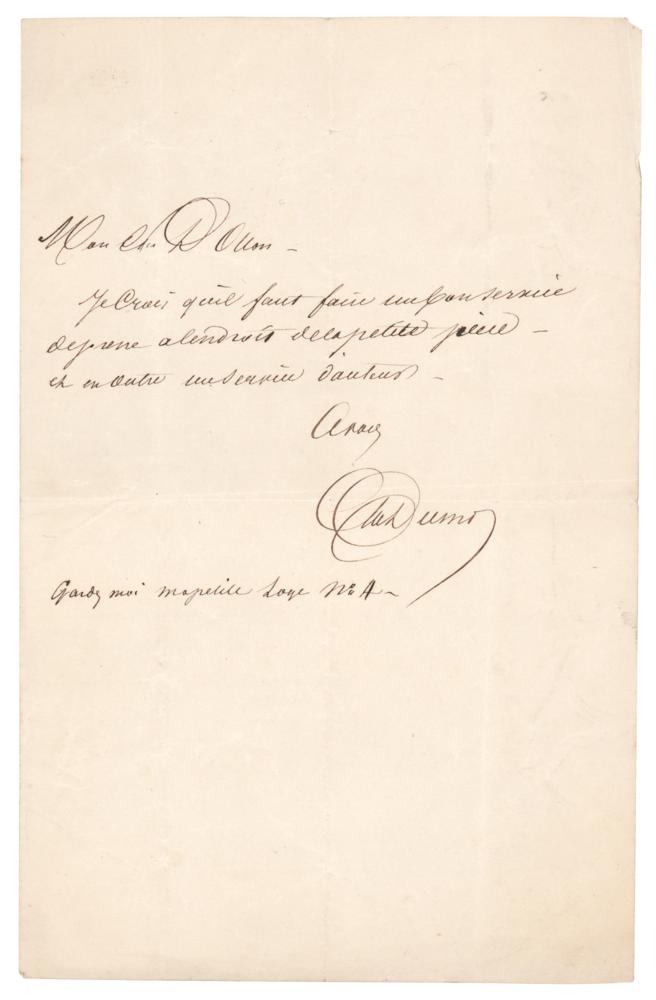 Mon cher D'Ollon –
Je crois qu'il faut faire un bon service
de presse a lendroit de la petite piece –
et en outre un service d'auteur –
A vous
Alex Dumas
Gardez moi ma petite Loge No 4 –